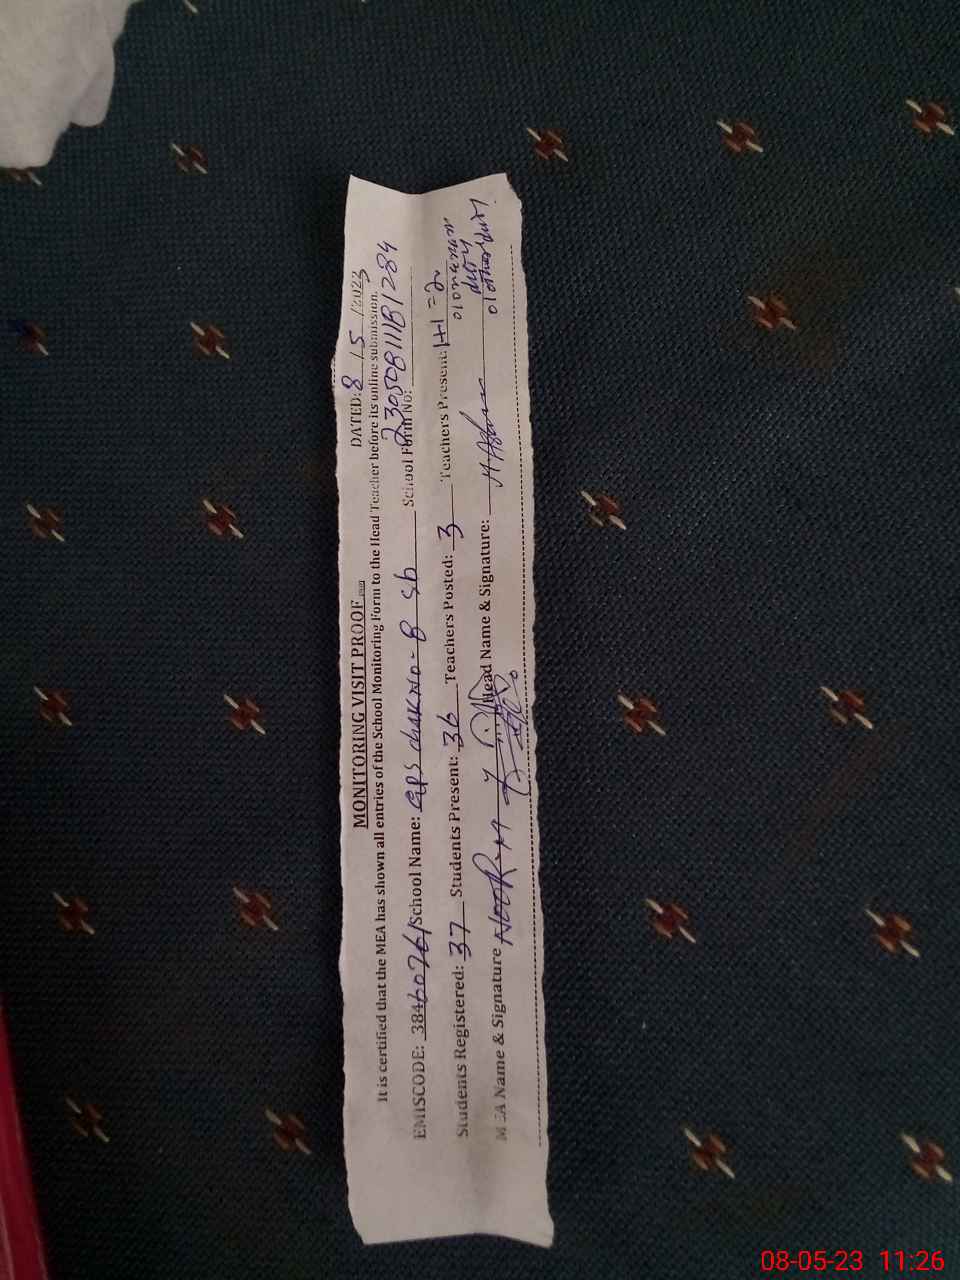 MONITORING VISIT PROOF
DATED: 8 / 5 /2023
It is certified that the MEA has shown all entries of the School Monitoring Form to the Head Teacher before its online submission.
EMISCODE: 38460761 School Name: GPS chak No-8 sb School Form No: 230508111B1284
Students Registered: 37 Students Present: 36 Teachers Posted: 3 Teachers Present: 1+1 = 2
duty
01 other duty
MEA Name & Signature Head Name & Signature:
08-05-23 11:26